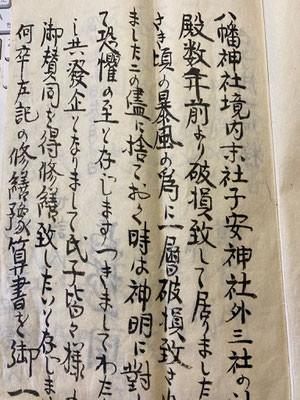 八幡神社境内末社子安神社外三社の
殿数年前より破損致して居りました
さき頃の暴風の為に一層破損致され
ましたこの儘に捨ておく時は神明に對
て恐懼の至と存じますつきましてわた
し共發企となりまして氏子皆々様
御賛同を得修繕致したいと存じま
何卒左記の修繕豫算書を御一